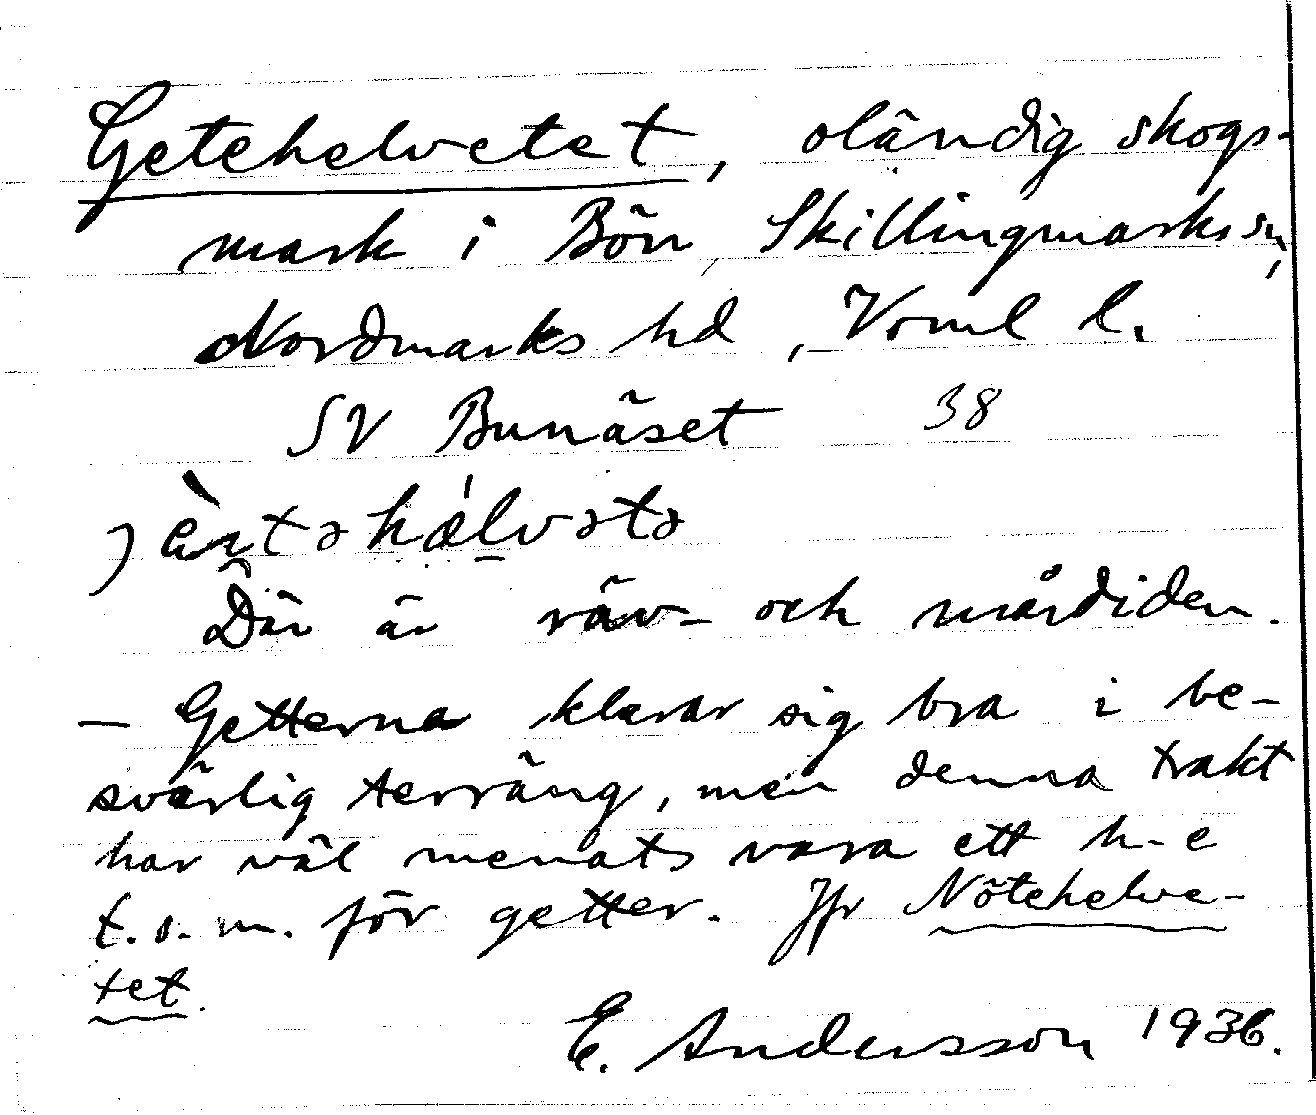 Getehelvetet, oländig skogs-
mark i Bön, Skillingmarks sn,
Nordmarks hd, Vrml l.
SV Bunäset 38
Där är räv- och mårdiden.
- Getterna klarar sig bra i be-
svärlig terräng, men denna trakt
har väl menats vara ett h-e
t.o.m. för getter. Jfr Nötehelve-
tet.
E. Andersson 1936.